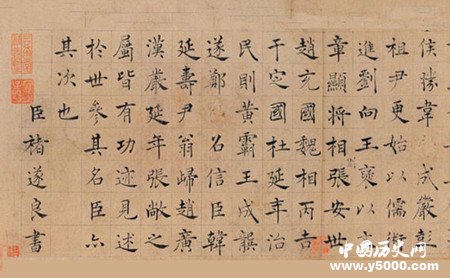 侯勝韋 成嚴彭
祖尹更始以儒術
進劉向王褒以文
章顯將相張安世
趙充國魏相丙吉
于定國杜延年治
民則黃霸王成龔
遂鄭 召信臣韓
延壽尹翁歸趙廣
漢嚴延年張敞之
屬皆有功迹見述
於世參其名臣亦
其次也
臣褚遂良書
中国历史网
www.y5000.com